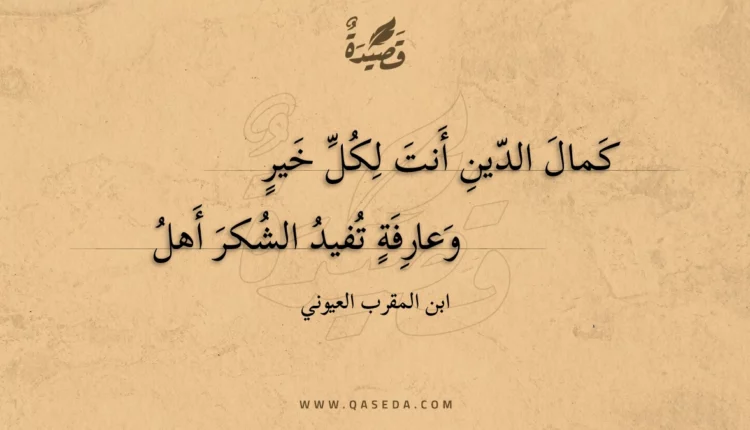 قَصِيدَةٌ
كَمالَ الدّينِ أَنتَ لِكُلِّ خَيرٍ
وَعارِفَةٍ تُفيدُ الشُكرَ أَهلُ
ابن المقرب العيوني
WWW.QASEDA.COM